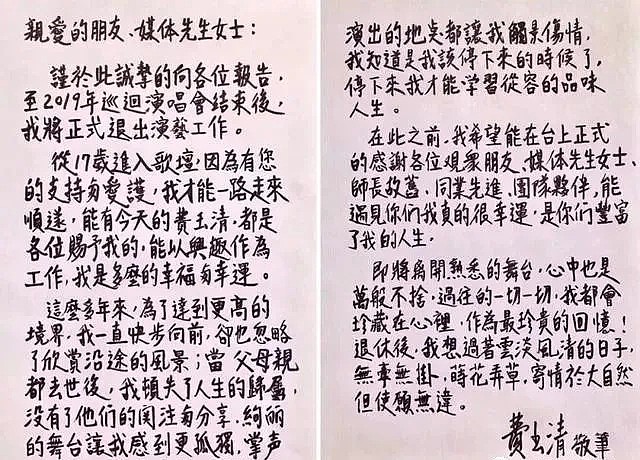 親愛的朋友、媒体先生女士：
謹於此誠摯的向各位報告，
至2019年巡迴演唱會結束後，
我將正式退出演藝工作。
從17歲進入歌壇，因為有您
的支持与愛護，我才能一路走來
順遂，能有今天的費玉清，都是
各位賜予我的，能以興趣作為
工作，我是多麼的幸福与幸運。
這麼多年來，為了達到更高的
境界，我一直快步向前，卻也忽略
了欣賞沿途的風景；當父母親
都去世後，我頓失了人生的歸屬，
没有了他們的関注与分享，絢麗
的舞台讓我感到更孤獨，掌声
演出的地点都讓我觸景傷情，
我知道是我該停下來的時候了，
停下來我才能学習從容的品味
人生。
在此之前，我希望能在台上正式
的感謝各位観衆朋友、媒体先生女士、
師長故舊、同業先進、團隊夥伴，能
遇見你們我真的很幸運，是你們豐富
了我的人生，
即將離開熟悉的舞台，心中也是
萬般不捨，過往的一切一切，我都會
珍藏在心裡，作為最珍貴的回憶！
退休後，我想過著雲淡風清的日子，
無牽無掛，蒔花弄草，寄情於大自然
但使願無違。
費玉清 敬筆